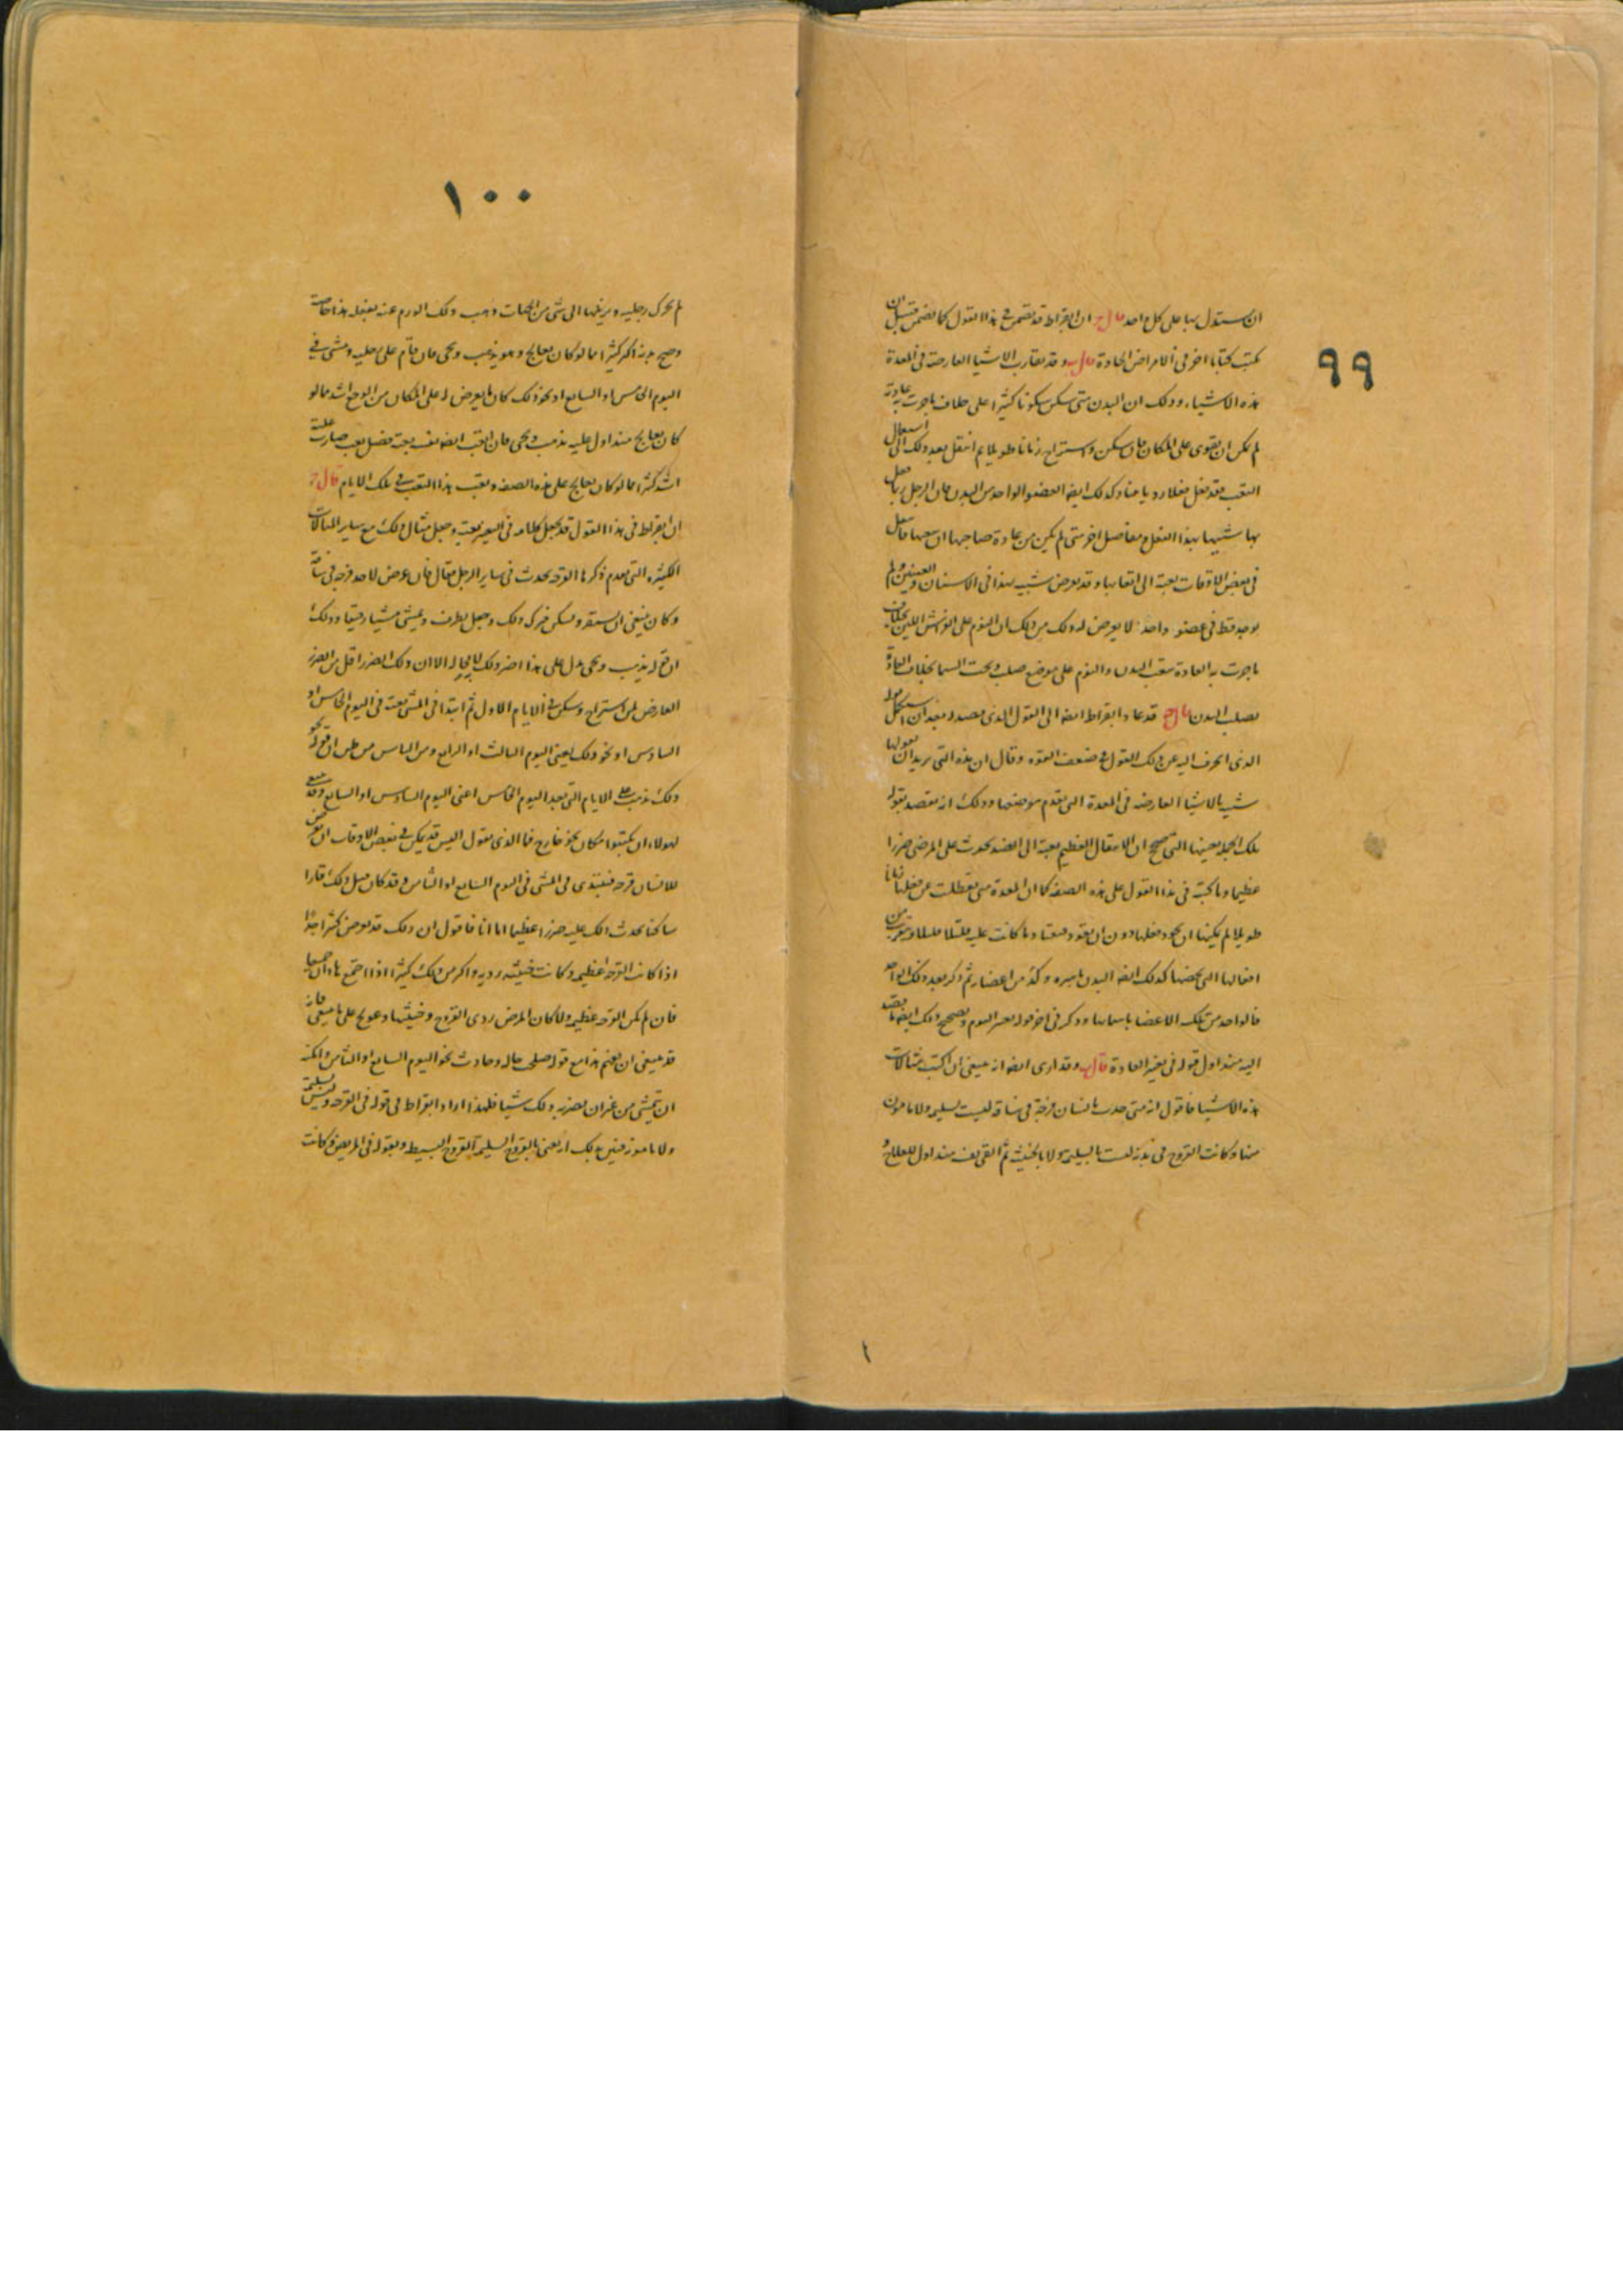 ٩٩
ان يستدل بها على كل واحد قال ج ان ابقراط قد تضمن في هذا القول كما تضمن قبيل ان
يكتب كتابا اخر في الامراض الحادة قال ب وقد يقارب الاشيا العارضة في المعدة
هذه الاشياء وذلك ان البدن متى سكن سكونا كثيرا على خلاف ما جرت عادته
لم يمكن ان يقوى على المكان فان سكن واستراح زمانا طويلا ثم انتقل بعد ذلك الى استعمال
التعب فقد فعل فعلا رديا بينا وكذلك ايضا العضو الواحد من البدن فان الرجل ربما فعل
بها شبيها بهذا الفعل ومفاصل اخر متى لم يكن من عادة صاحبها ان يتعبها
في بعض الاوقات بغتة الى اتعابها وقد يعرض شبيه بهذا في الاسنان والعينين ولم
يوجد قط في عضو واحد لا يعرض له ذلك من ذلك ان النوم على الفرش اللين بخلاف
ما جرت به العادة يتعب البدن والنوم على موضع صلب وتحت السما بخلاف العادة
يصلب البدن قال ج قد عاد ابقراط ايضا الى القول الذي قصد له بعد ان استكمل قوله
الذي انحرف اليه عن ذلك القول في ضعف القوة وقال ان هذه التي يريد ان يقولها
شبيه بالاشيا العارضه في المعدة التي تقدم موضعها وذلك انه يقصد بقوله
تلك الجملة بعينها التي تصحح ان الانتقال العظيم بغتة الى الضد يحدث على المرضى ضررا
عظيما وما كتبه في هذا القول على هذه الصفة كما ان المعدة متى تعطلت عن فعلها زمانا
طويلا لم يمكنها ان تجود فعلها دون ان يعود معتادا ما كانت عليه قليلا قليلا وتقرب من
افعالها التي تخصها كذلك ايضا البدن باسره وكل من اعضائه ثم ذكر بعد ذلك الواحد
فالواحد من تلك الاعضا باسمائها وذكر في اخر قوله عسر النوم وتصحيح ذلك ايضا ما يقصد
اليه منذ اول قوله في تغير العادة قال ب وقد ارى ايضا انه ينبغي ان اكتب مثالات
هذه الاشيا فاقول انه متى حدث بانسان قرحة في ساقه ليست بسليمه ولا مامون
منها وكانت القروح في بدنه ليست بالسليمة ولا بالخبيثة ثم القي بعد منذ اول العلاج و
١٠٠
لم يحرك رجليه ويزيلها الى شي من الجهات وذهب ذلك الورم عنه بفعله هذا خاصة
وصح بدنه اكثر كثيرا مما لو كان يعالج وهو يذهب ويجي فان قام على رجليه ومشى في
اليوم الخامس او السابع او نحو ذلك كان ما يعرض له على المكان من الوجع اشد مما لو
كان يعالج منذ اول عليه يذهب ويجي فان اتعب ايضا نفسه بغتة فضل تعب صارت علته
اشد كثيرا مما لو كان يعالج على هذه الصفه ويتعب هذا التعب في تلك الايام قال ج
ان ابقراط في هذا القول قد يجعل كلامه في التغير بغتة وجعل مثال ذلك مع سائر المثالات
الكثيره التي تقدم ذكرها القرحه تحدث في سائر الرجل فقال فان عرض لاحد قرحه في ساقه
وكان ينبغي ان يستقر ويسكن فترك ذلك وجعل يطوف ويمشي مشيا رفيقا وذلك
ان قوله يذهب ويجي يدل على هذا اضر ذلك لا محاله الا ان ذلك الضرر اقل من الضرر
العارض لمن استراح وسكن في الايام الاول ثم ابتدا في المشي بغتة في اليوم الخامس او
السادس او نحو ذلك يعني اليوم الثالث او الرابع ومن الناس من ظن ان قوله نحو
ذلك يذهب على الايام التي بعد اليوم الخامس اعني اليوم السادس او السابع وقد ينبغي
لهولاء ان يكتبوا مكان نحو خارج فما الذي نقول اليس قد يمكن في بعض الاوقات ان تعرض
للانسان قرحه فيبتدي في المشي في اليوم السابع او الثامن وقد كان قبل ذلك قارا
ساكنا يحدث ذلك عليه ضررا عظيما اما انا فاقول ان ذلك قد يعرض كثيرا جدا
اذا كانت القرحه عظيمه وكانت خبيثه رديه واكثر من ذلك كثيرا اذا اجتمع هاذان جميعا
فان لم يكن القرحه عظيمه ولا كان المرض ردي القروح وخبيثها وعولج على ما ينبغي فانه
قد ينبغي ان يفهم هذا مع قوله صلحت حاله وعادت نحو اليوم السابع او الثامن وامكنه
ان يمشي من غير ان يضر به ذلك شيا فلهذا اراد ابقراط في قوله في القرحه وليس بسليمة
ولا مامونه فبين بذلك انه يعني بالقروح السليمة القروح البسيطه وبقوله في المريض وكانت